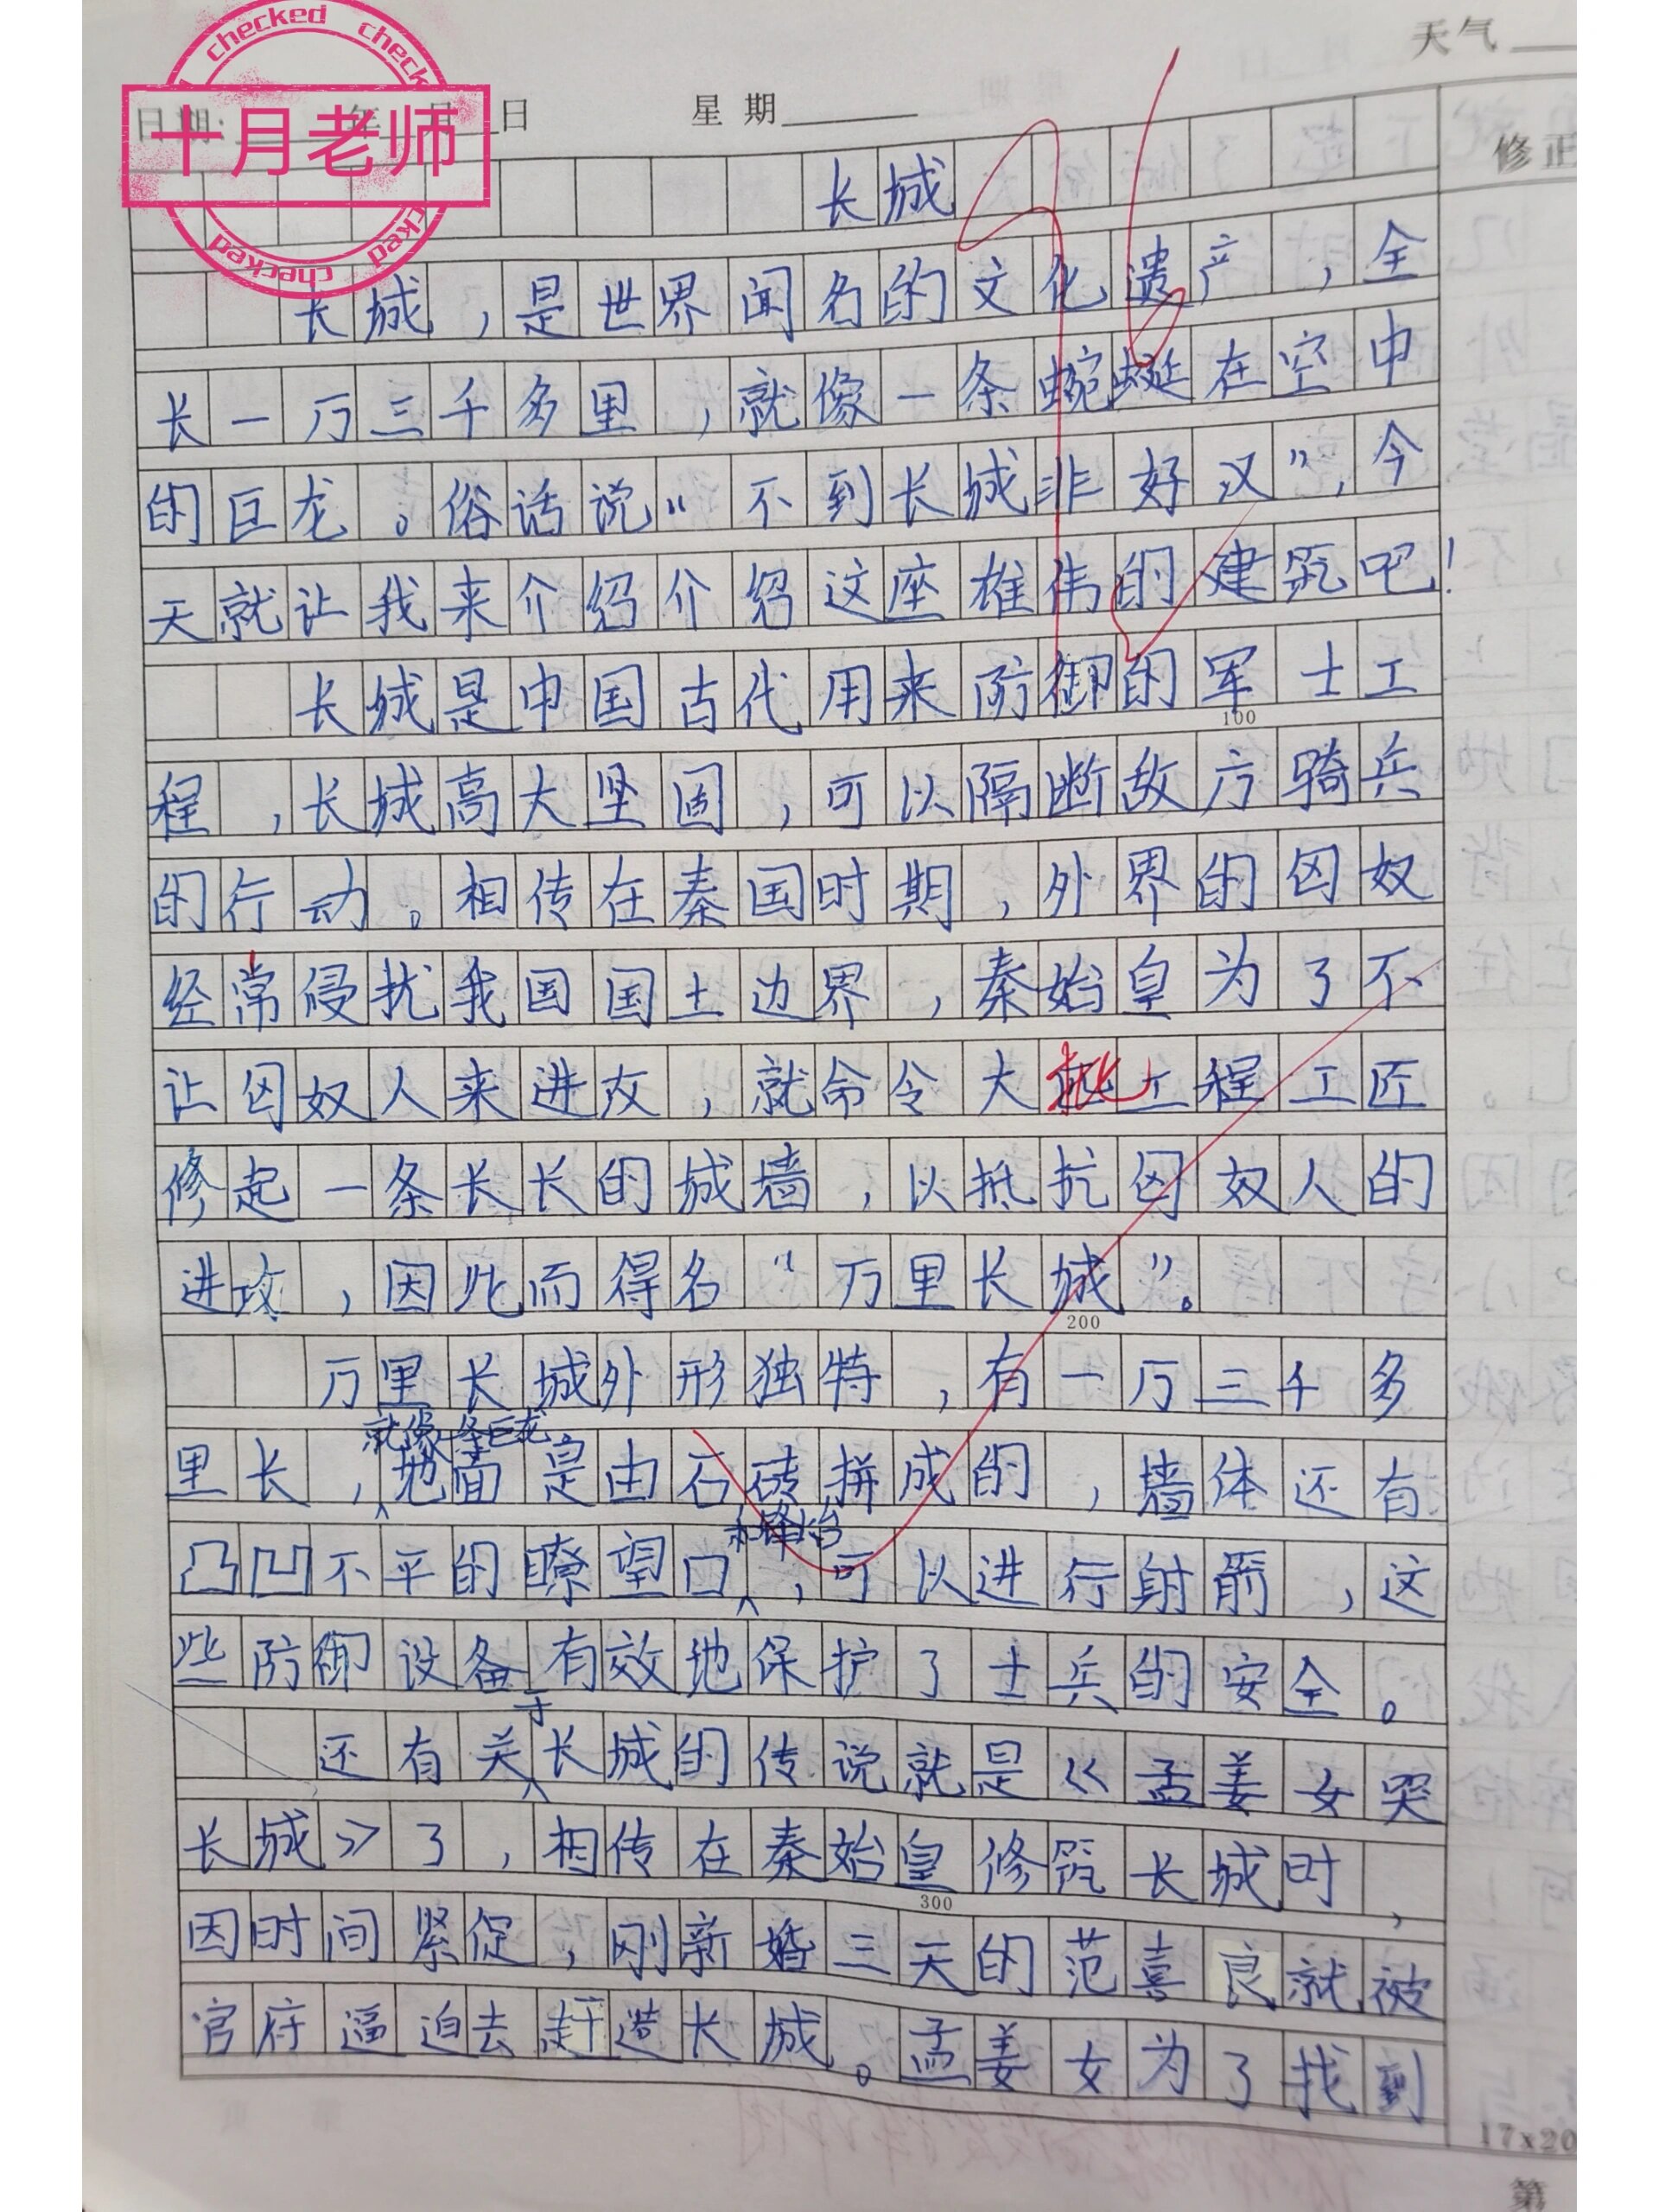 天气
日期: 年 月 日 星期
checked checked
十月老师
checked checked
修正
长城
长城，是世界闻名的文化遗产，全
长一万三千多里，就像一条蜿蜒在空中
的巨龙。俗话说“不到长城非好汉”，今
天就让我来介绍介绍这座雄伟的建筑吧！
长城是中国古代用来防御的军士工
程，长城高大坚固，可以隔断敌方骑兵
的行动。相传在秦国时期，外界的囟奴
经常侵扰我国国土边界，秦始皇为了不
让囟奴人来进攻，就命令大批工程工匠
修起一条长长的城墙，以抵抗囟奴人的
进攻，因此而得名“万里长城”。
万里长城外形独特，有一万三千多
里长，就像一条巨龙地面是由石砖拼成的，墙体还有
凸凹不平的瞭望口和烽火台，可以进行射箭，这
些防御设备有效地保护了士兵的安全。
还有关于长城的传说就是《孟姜女哭
长城》了，相传在秦始皇修筑长城时，
因时间紧促，刚新婚三天的范喜良就被
官府逼迫去赶造长城。孟姜女为了找到
100
200
300
17x20
第